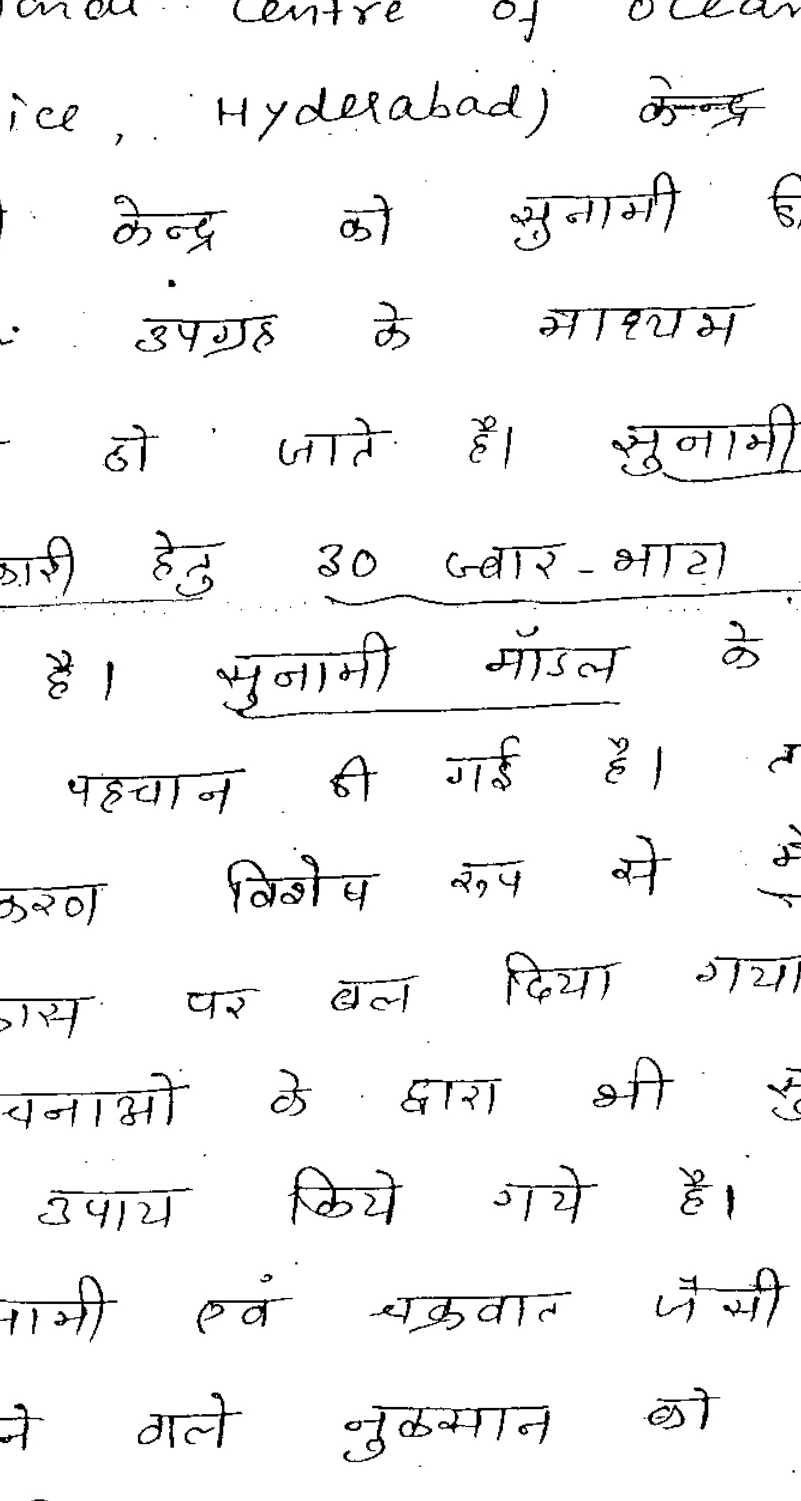 Centre of Ocean
ice, Hyderabad) केन्द्र
केन्द्र को सुनामी
उपग्रह के माध्यम
हो जाते है। सुनामी
कारी हेतु 30 ज्वार-भाटा
है। सुनामी मॉडल के
पहचान की गई है।
करण विशेष रूप से
पर बल दिया गया
चनाओं के द्वारा भी सु
उपाय किये गये है।
नामी एवं चक्रवात जैसी
ने वाले नुकसान को